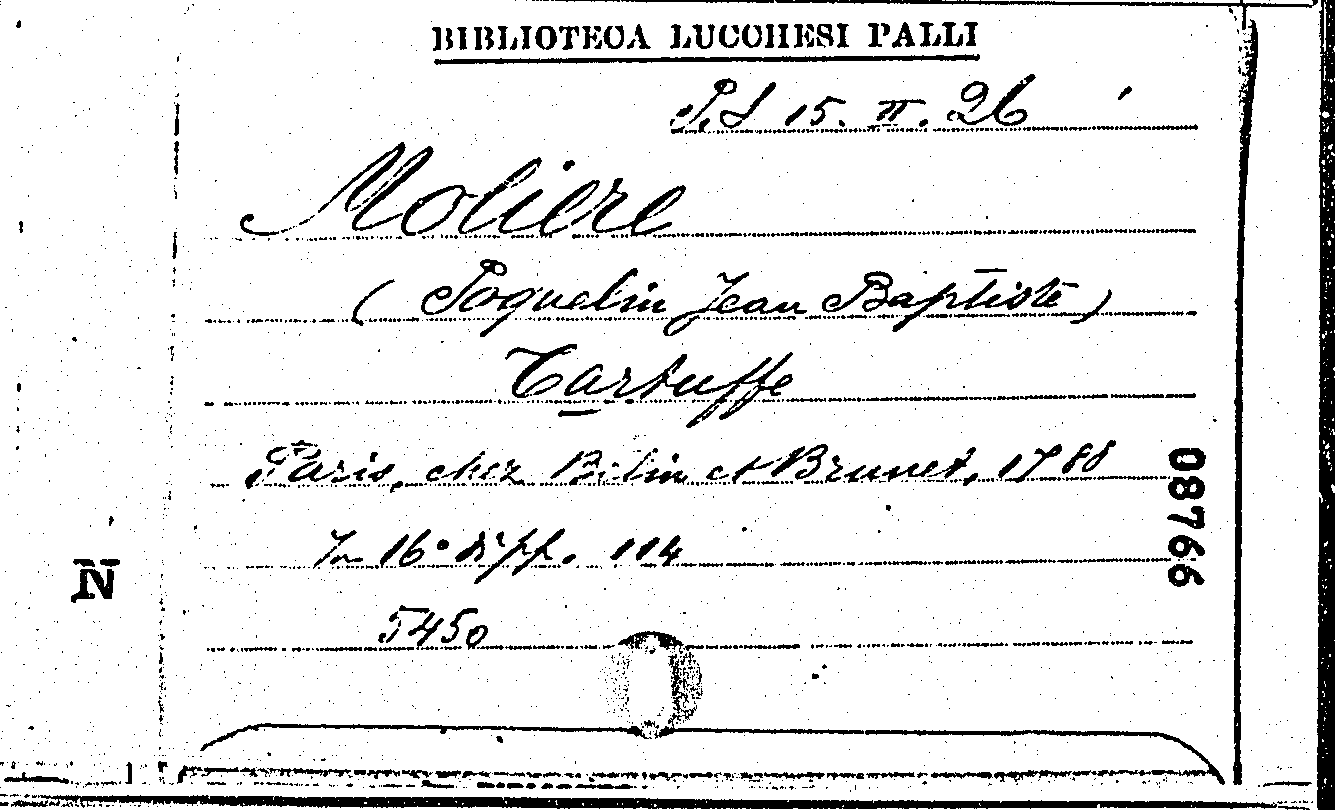 BIBLIOTECA LUCCHESI PALLI
P.S 15. II. 26
Molière
(Poquelin Jean Baptiste)
Tartuffe
Paris, chez Belin et Brunet, 1788
In 16° di pp. 114
5450
N
08766